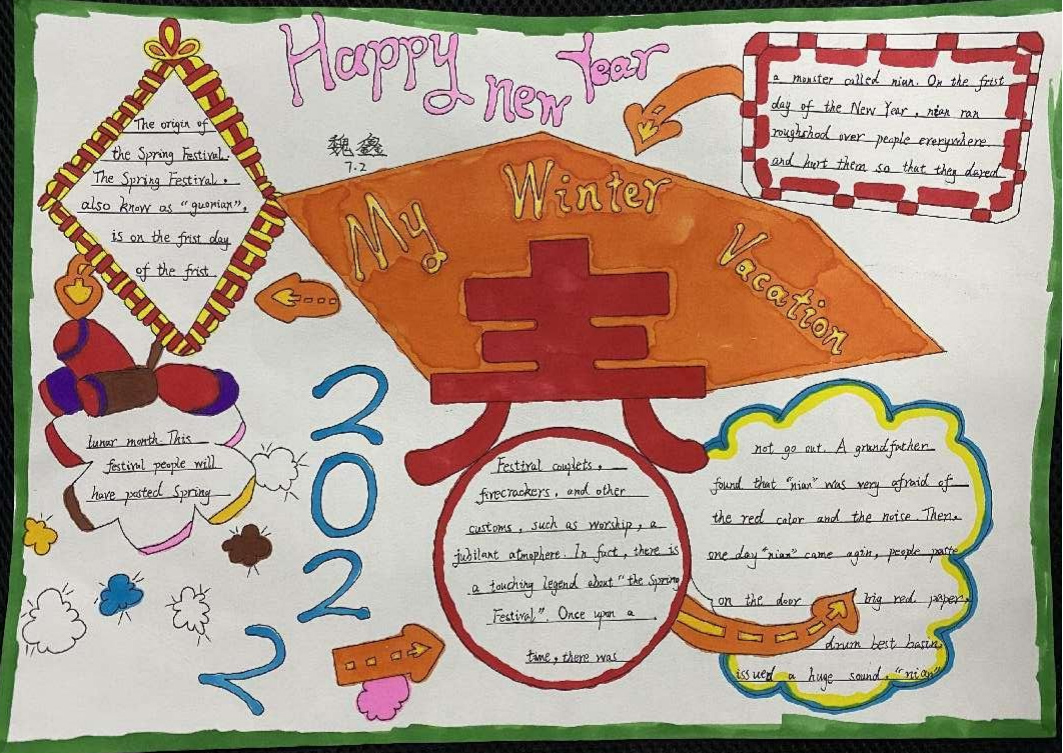 Happy new Year
魏鑫
7.2
My Winter Vacation
The origin of
the Spring Festival.
The Spring Festival,
also know as "guonian",
is on the frist day
of the frist
lunar month. This
festival people will
have posted Spring
Festival couplets,
firecrackers, and other
customs, such as worship, a
jubilant atmophere. In fact, there is
a touching legend about "the Spring
Festival". Once upon a
time, there was
a monster called nian. On the frist
day of the New Year, nian ran
roughshod over people everywhere
and hurt them so that they dared
not go out. A grandfather
found that "nian" was very afraid of
the red color and the noise. Then,
one day "nian" came agin, people paste
on the door big red paper,
drum best basin,
issued a huge sound. "nian"
2022